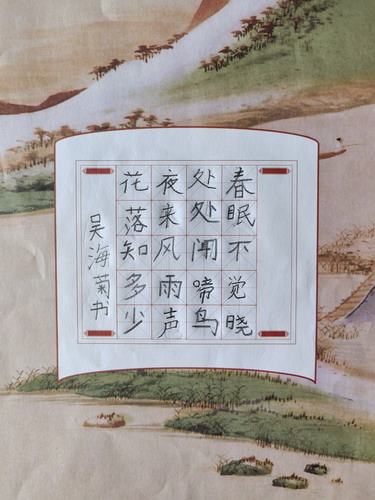 春眠不觉晓
处处闻啼鸟
夜来风雨声
花落知多少
吴海菊书